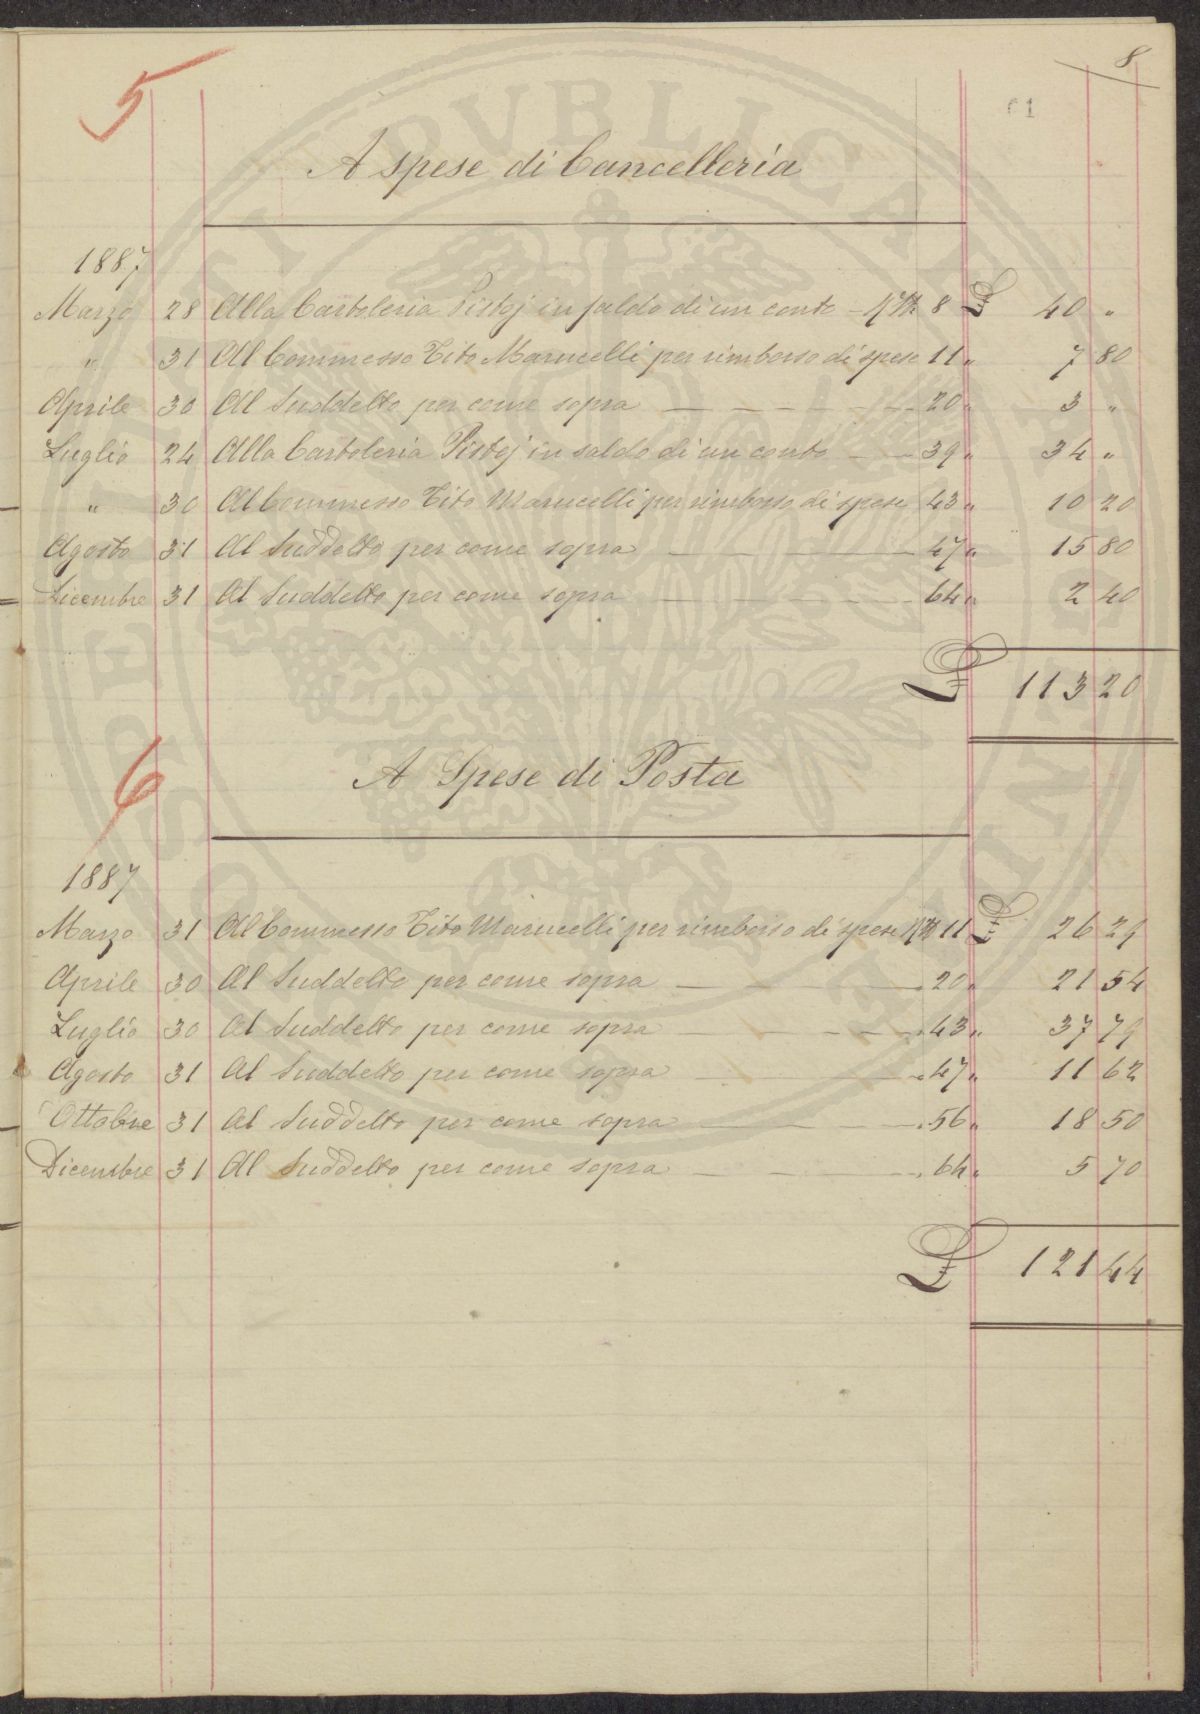 8
5
61
A spese di Cancelleria
1887
Marzo 28 Alla Cartoleria Pistoj in saldo di un conto - 8 £ 40 "
" 31 Al Commesso Tito Marucelli per rimborso di spese 11 " 7 80
Aprile 30 Al Suddetto per come sopra — — — — — 20 " 3 "
Luglio 24 Alla Cartoleria Pistoj in saldo di un conto — — 39 " 34 "
" 30 Al Commesso Tito Marucelli per rimborso di spese 43 " 10 20
Agosto 31 Al Suddetto per come sopra — — — — 47 " 15 80
Dicembre 31 Al Suddetto per come sopra — — — — 64 " 2 40
£ 113 20
6
A Spese di Posta
1887
Marzo 31 Al Commesso Tito Marucelli per rimborso di spese 11 £ 26 29
Aprile 30 Al Suddetto per come sopra — — — — 20 " 21 54
Luglio 30 Al Suddetto per come sopra — — — — 43 " 37 79
Agosto 31 Al Suddetto per come sopra — — — — 47 " 11 62
Ottobre 31 Al Suddetto per come sopra — — — — 56 " 18 50
Dicembre 31 Al Suddetto per come sopra — — — — 64 " 5 70
£ 121 44